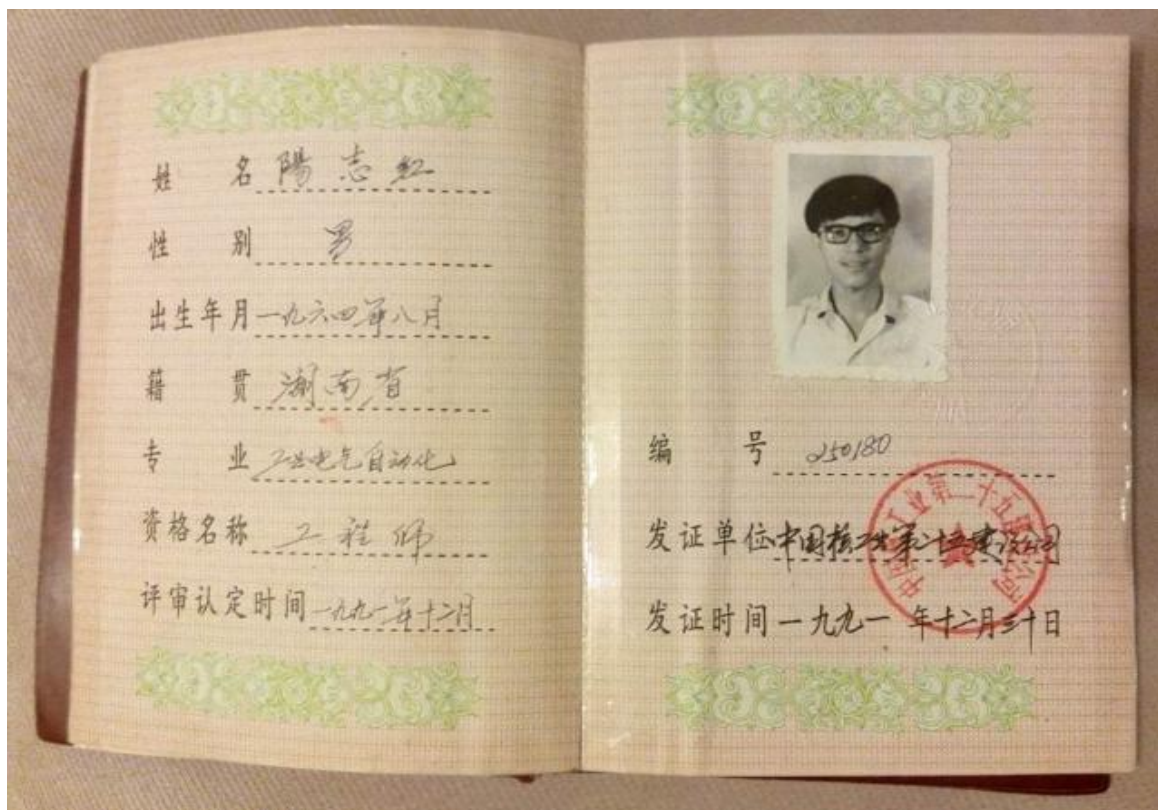 姓 名 陽志红
性 别 男
出生年月 一九六四年八月
籍 贯 湖南省
专 业 工业电气自动化
资格名称 工程师
评审认定时间 一九九一年十二月
编 号 250180
发证单位 中国核工业第二十五建设公司
发证时间 一九九一年十二月三十日